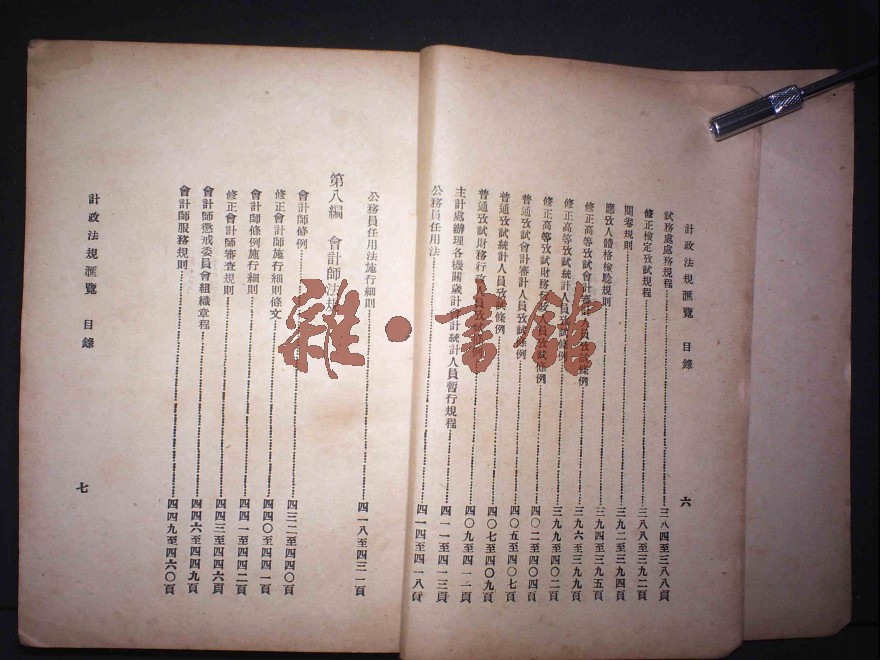 計政法規滙覽　目錄
試務處處務規程…三八四至三八八頁
修正檢定攷試規程…三八八至三九二頁
閱卷規則…三九二至三九四頁
應攷人體格檢驗規則…三九四至三九五頁
修正高等攷試會計審計人員攷試條例…三九六至三九九頁
修正高等攷試統計人員攷試條例…三九九至四〇二頁
修正高等攷試財務行政人員攷試條例…四〇二至四〇四頁
普通攷試會計審計人員攷試條例…四〇五至四〇七頁
普通攷試統計人員攷試條例…四〇七至四〇九頁
普通攷試財務行政人員攷試條例…四〇九至四一一頁
主計處辦理各機關歲計會計統計人員暫行規程…四一一至四一三頁
公務員任用法…四一四至四一八頁
六
公務員任用法施行細則…四一八至四三一頁
第八編　會計師法規
會計師條例…四三二至四四〇頁
修正會計師施行細則條文…四四〇至四四一頁
會計師條例施行細則…四四一至四四二頁
修正會計師審查規則…四四三至四四六頁
會計師懲戒委員會組織章程…四四六至四四九頁
會計師服務規則…四四九至四六〇頁
計政法規滙覽　目錄
七
雜·書館